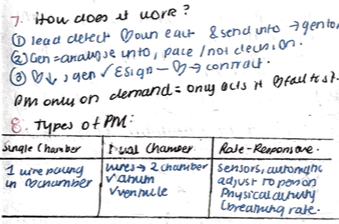 7. How does it work?
① lead detect ♡ own eact & send into → gentor,
② Gen = analyse into, pace / not decision.
③ ♡↓, gen ✓ Esign – ♡ → contract.
PM only on demand = only acts if ♡ fail to st.
8. Types of PM:
Single Chamber | Dual Chamber | Rate-Responsive.
1 wire | wires → 2 chamber | sensors, automatic
in ♡ chamber | ✓ atrium | adjust to person
✓ ventricle | Physical activity
(breathing rate.